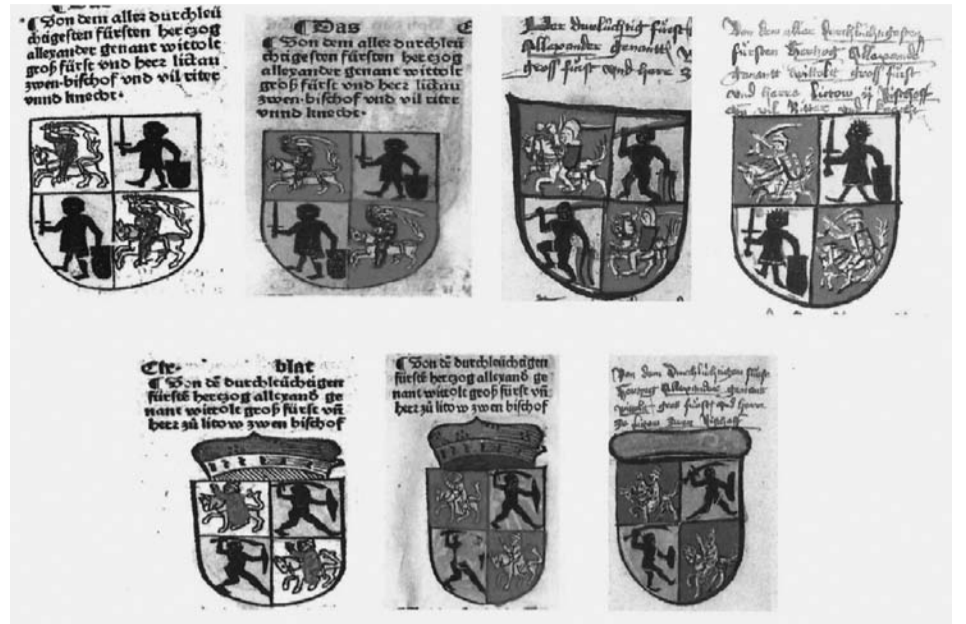 Das
¶ Von dem aller durchleü
chtigesten fürsten herczog
allexander genant wittolt
groß fürst vnd herr lictau
zwen·bischof vnd vil ritre
vnnd knecht·
¶ Das E
¶ Von dem aller durchleü
chtigesten fürsten herczog
allexander genant wittolt
groß fürst vnd herr lictau
zwen·bischof vnd vil ritre
vnnd knecht·
Der durlüchtig fürst
Allexander genantt
gross fürst vnd herr
Von dem aller
fürsten Hertzog
genantt wittolt gross fürst
vnd herre Bischoff
vil Ritter vnd
blat
¶ Von dē durchleüchtigen
fürstē herczog allexand ge
nant wittolt groß fürst vñ
herr zů litow zwen bischof
¶ Von dē durchleüchtigen
fürstē herczog allexand ge
nant wittolt groß fürst vñ
herr zů litow zwen bischof
Von dem Durchlüchtigen fürst
Hertzog Allexander genant
gros fürst vnd herr
zwen Bischoff